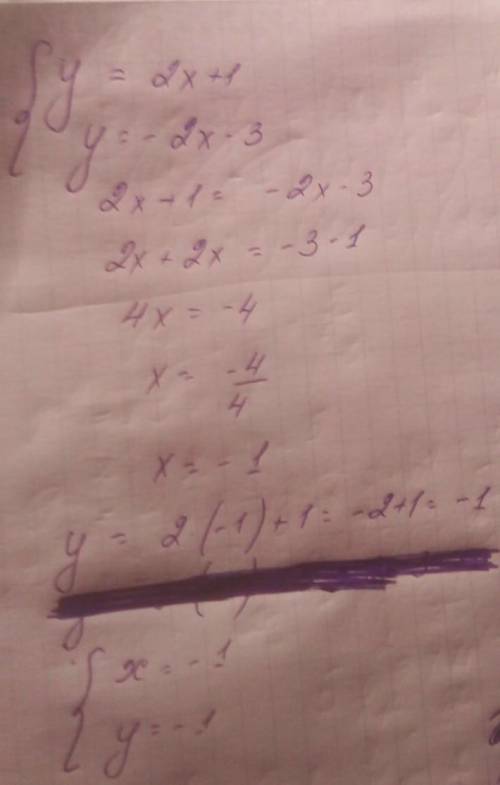 { y = 2x+1
y = -2x-3
2x+1 = -2x-3
2x+2x = -3-1
4x = -4
x = -4/4
x = -1
y = 2(-1)+1 = -2+1 = -1
{ x = -1
y = -1